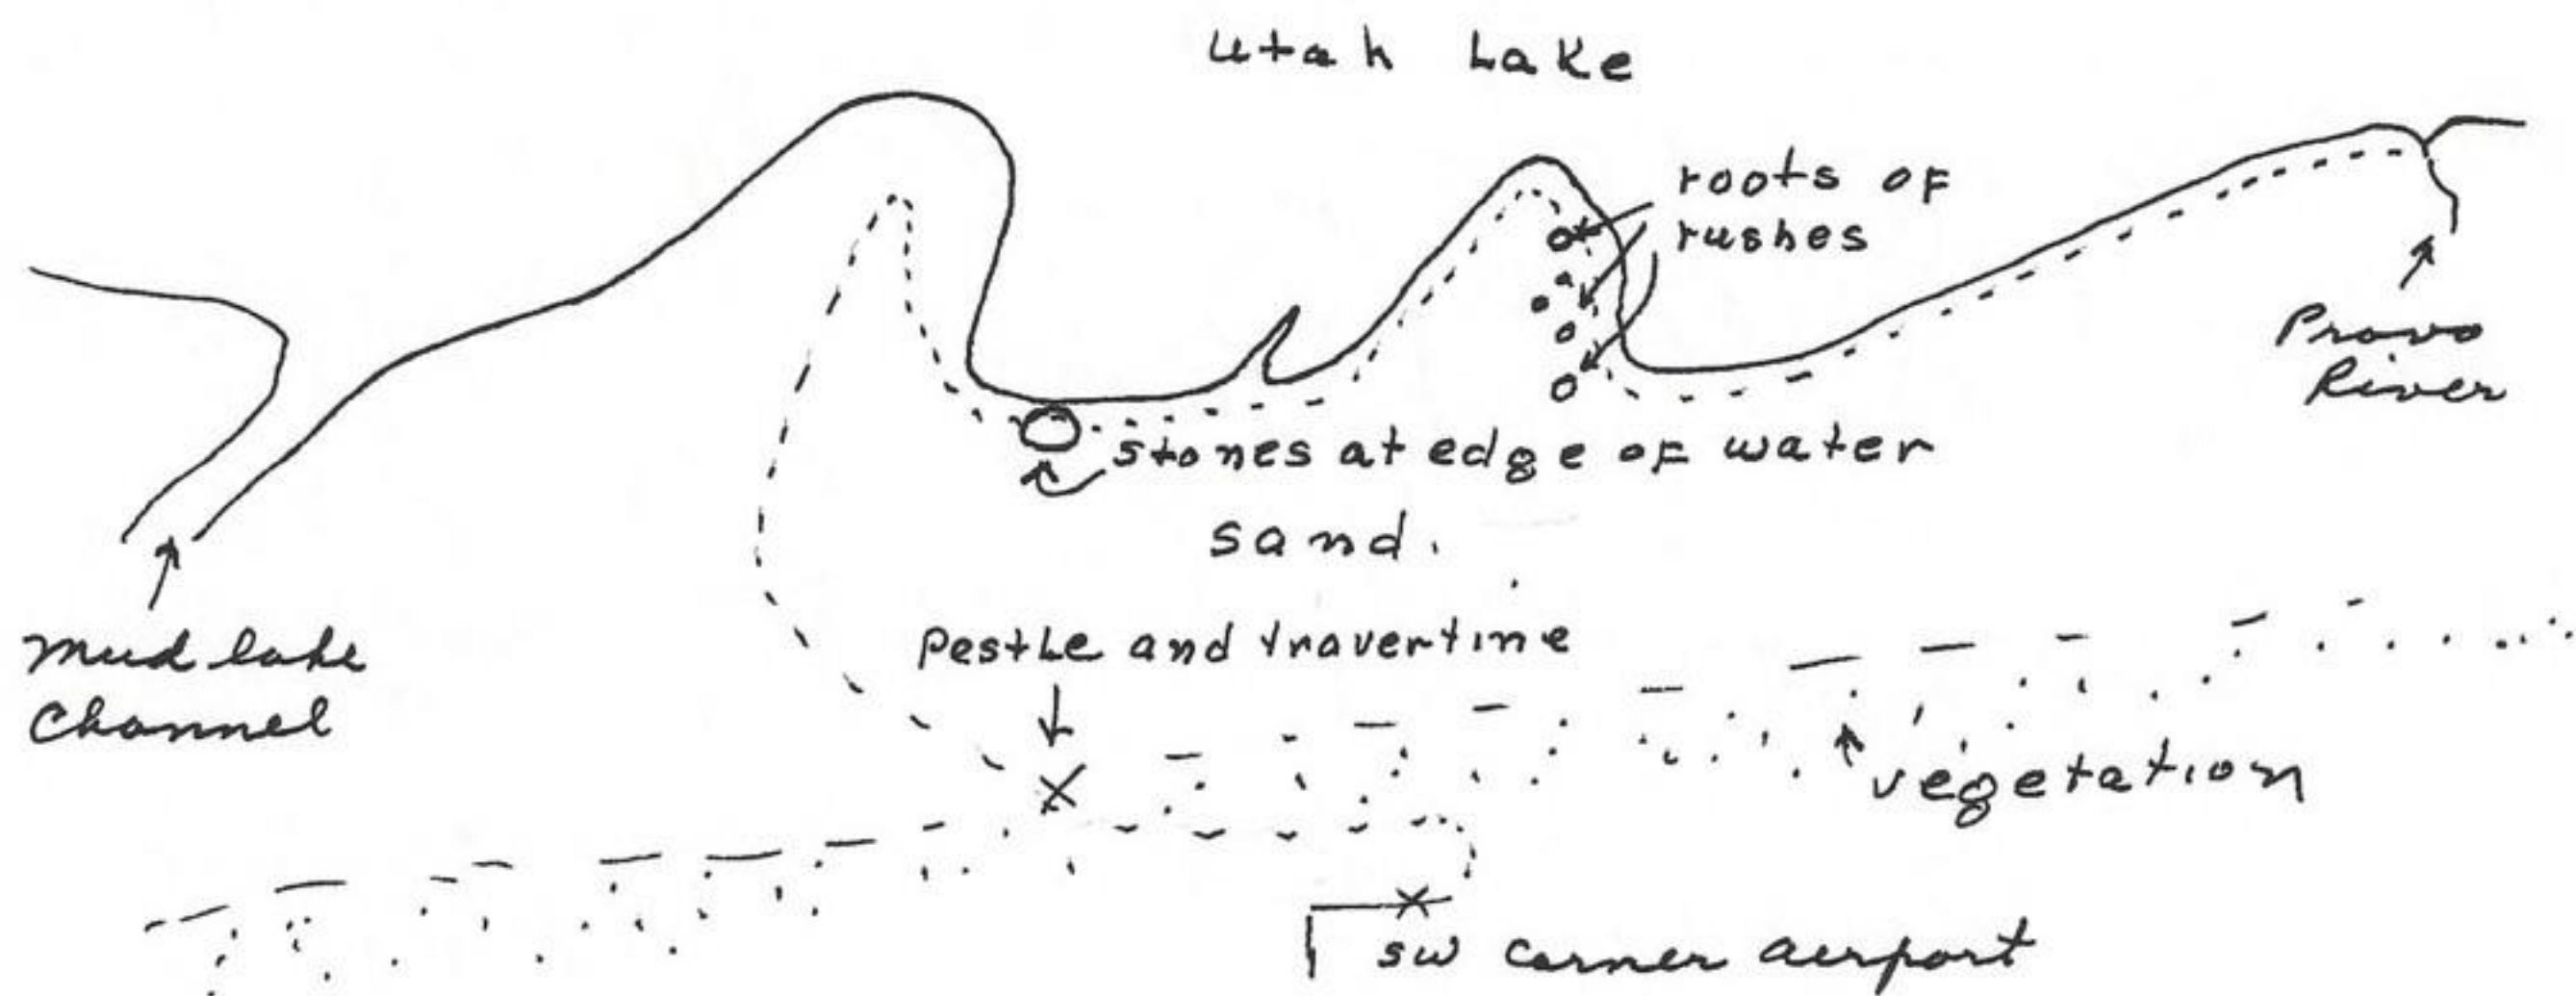 Utah Lake
roots of
rushes
Provo
River
stones at edge of water
sand.
Mud lake
Channel
Pestle and travertine
vegetation
SW corner airport